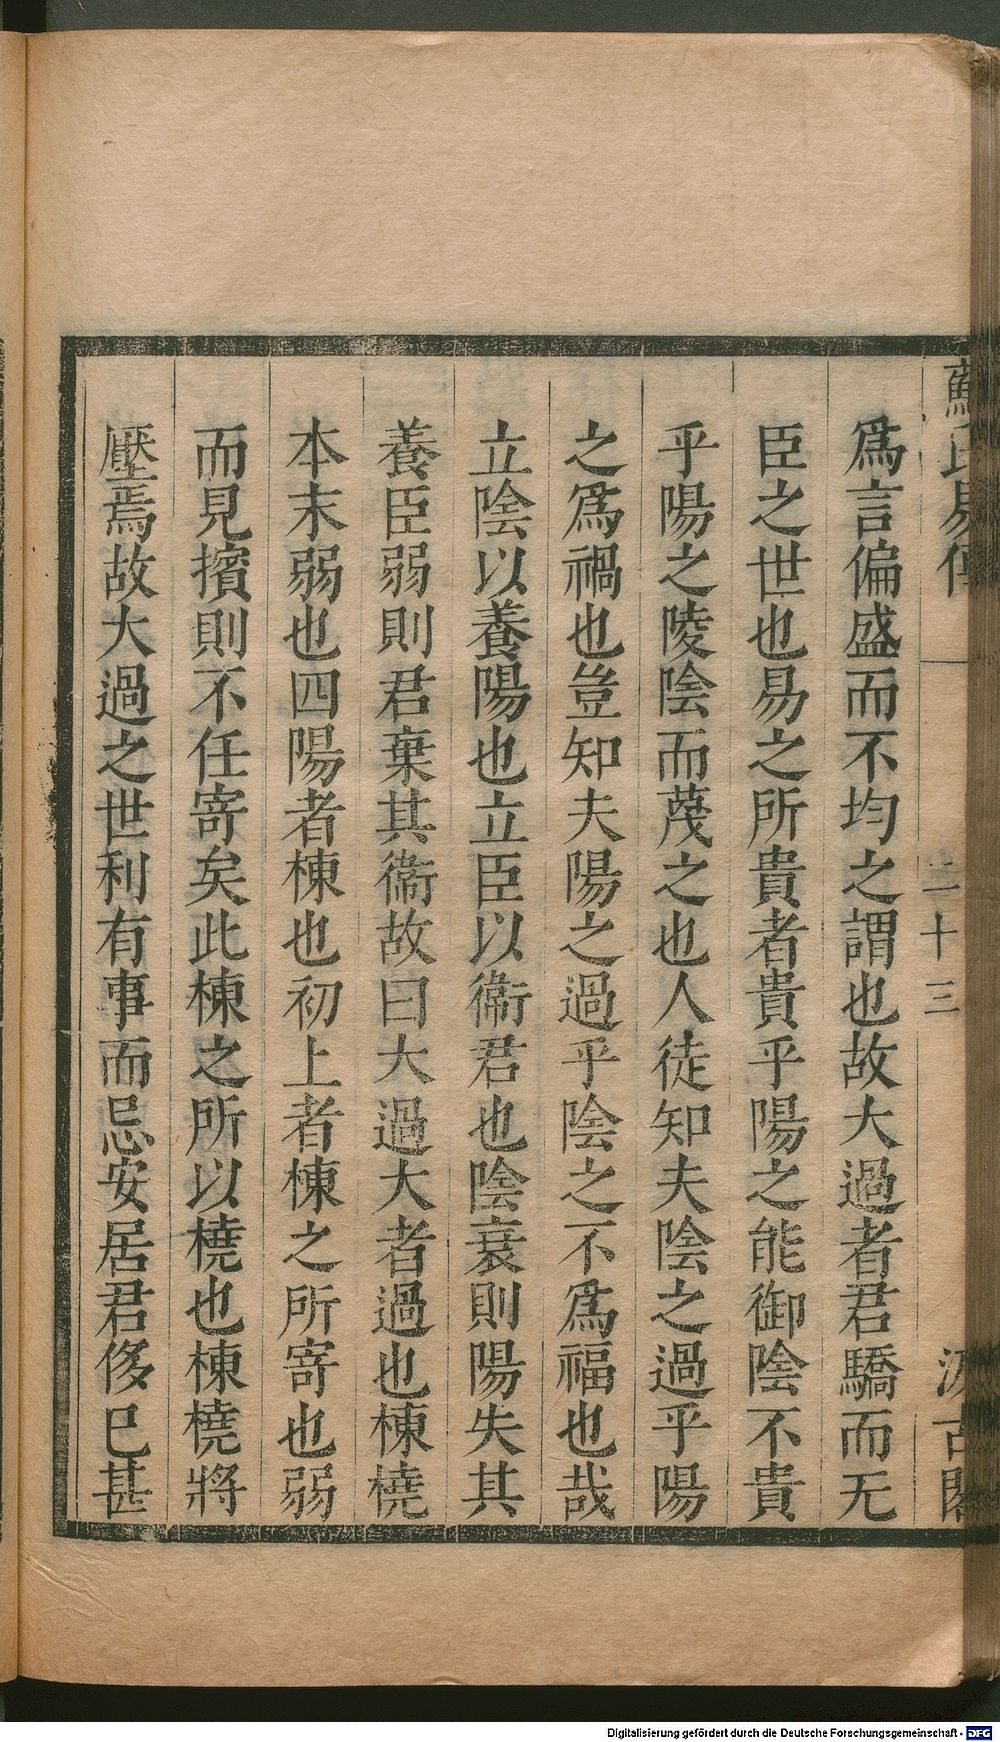 蘇氏易傳
二十三
汲古閣
爲言偏盛而不均之謂也故大過者君驕而无
臣之世也易之所貴者貴乎陽之能御陰不貴
乎陽之陵陰而蔑之也人徒知夫陰之過乎陽
之爲禍也豈知夫陽之過乎陰之不爲福也哉
立陰以養陽也立臣以衞君也陰衰則陽失其
養臣弱則君棄其衞故曰大過大者過也棟橈
本末弱也四陽者棟也初上者棟之所寄也弱
而見擯則不任寄矣此棟之所以橈也棟橈將
壓焉故大過之世利有事而忌安居君侈已甚
Digitalisierung gefördert durch die Deutsche Forschungsgemeinschaft - DFG